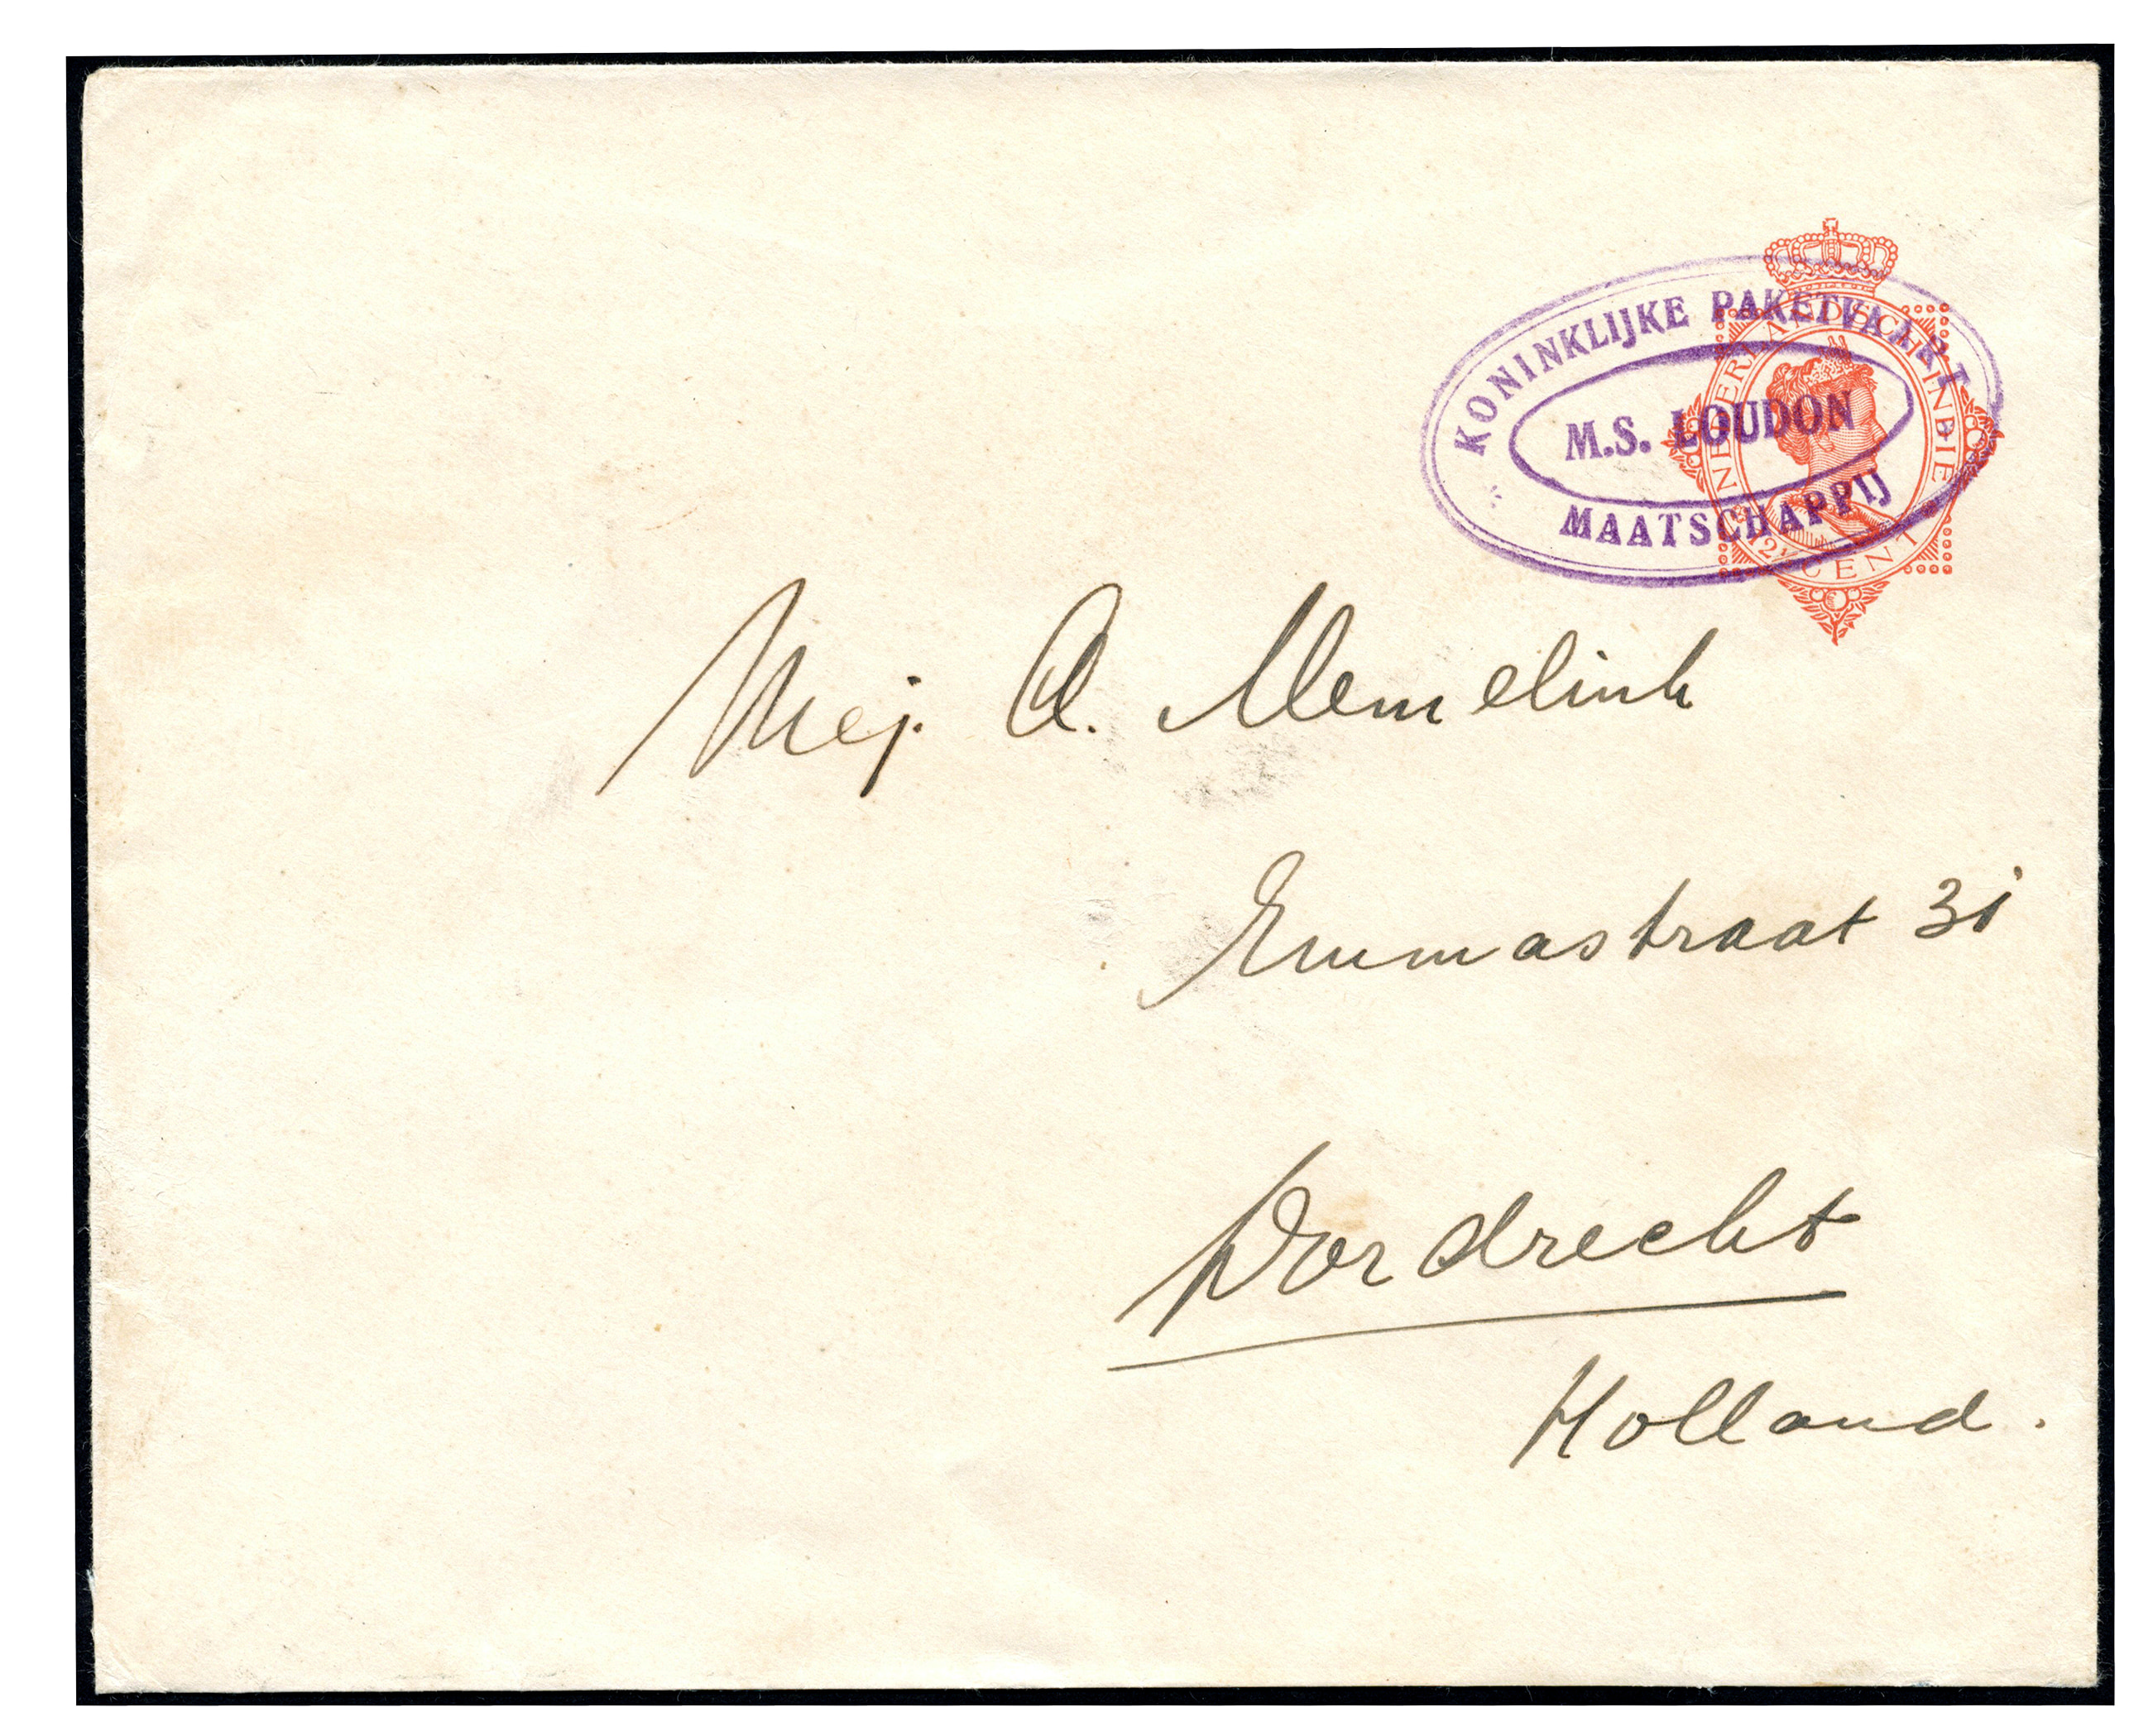 KONINKLIJKE PAKETVAART
M.S. LOUDON
MAATSCHAPPIJ
NEDERLANDSCH-INDIE
12½ CENT
Mej. A. Memelink
Emmastraat 31
Dordrecht
Holland.